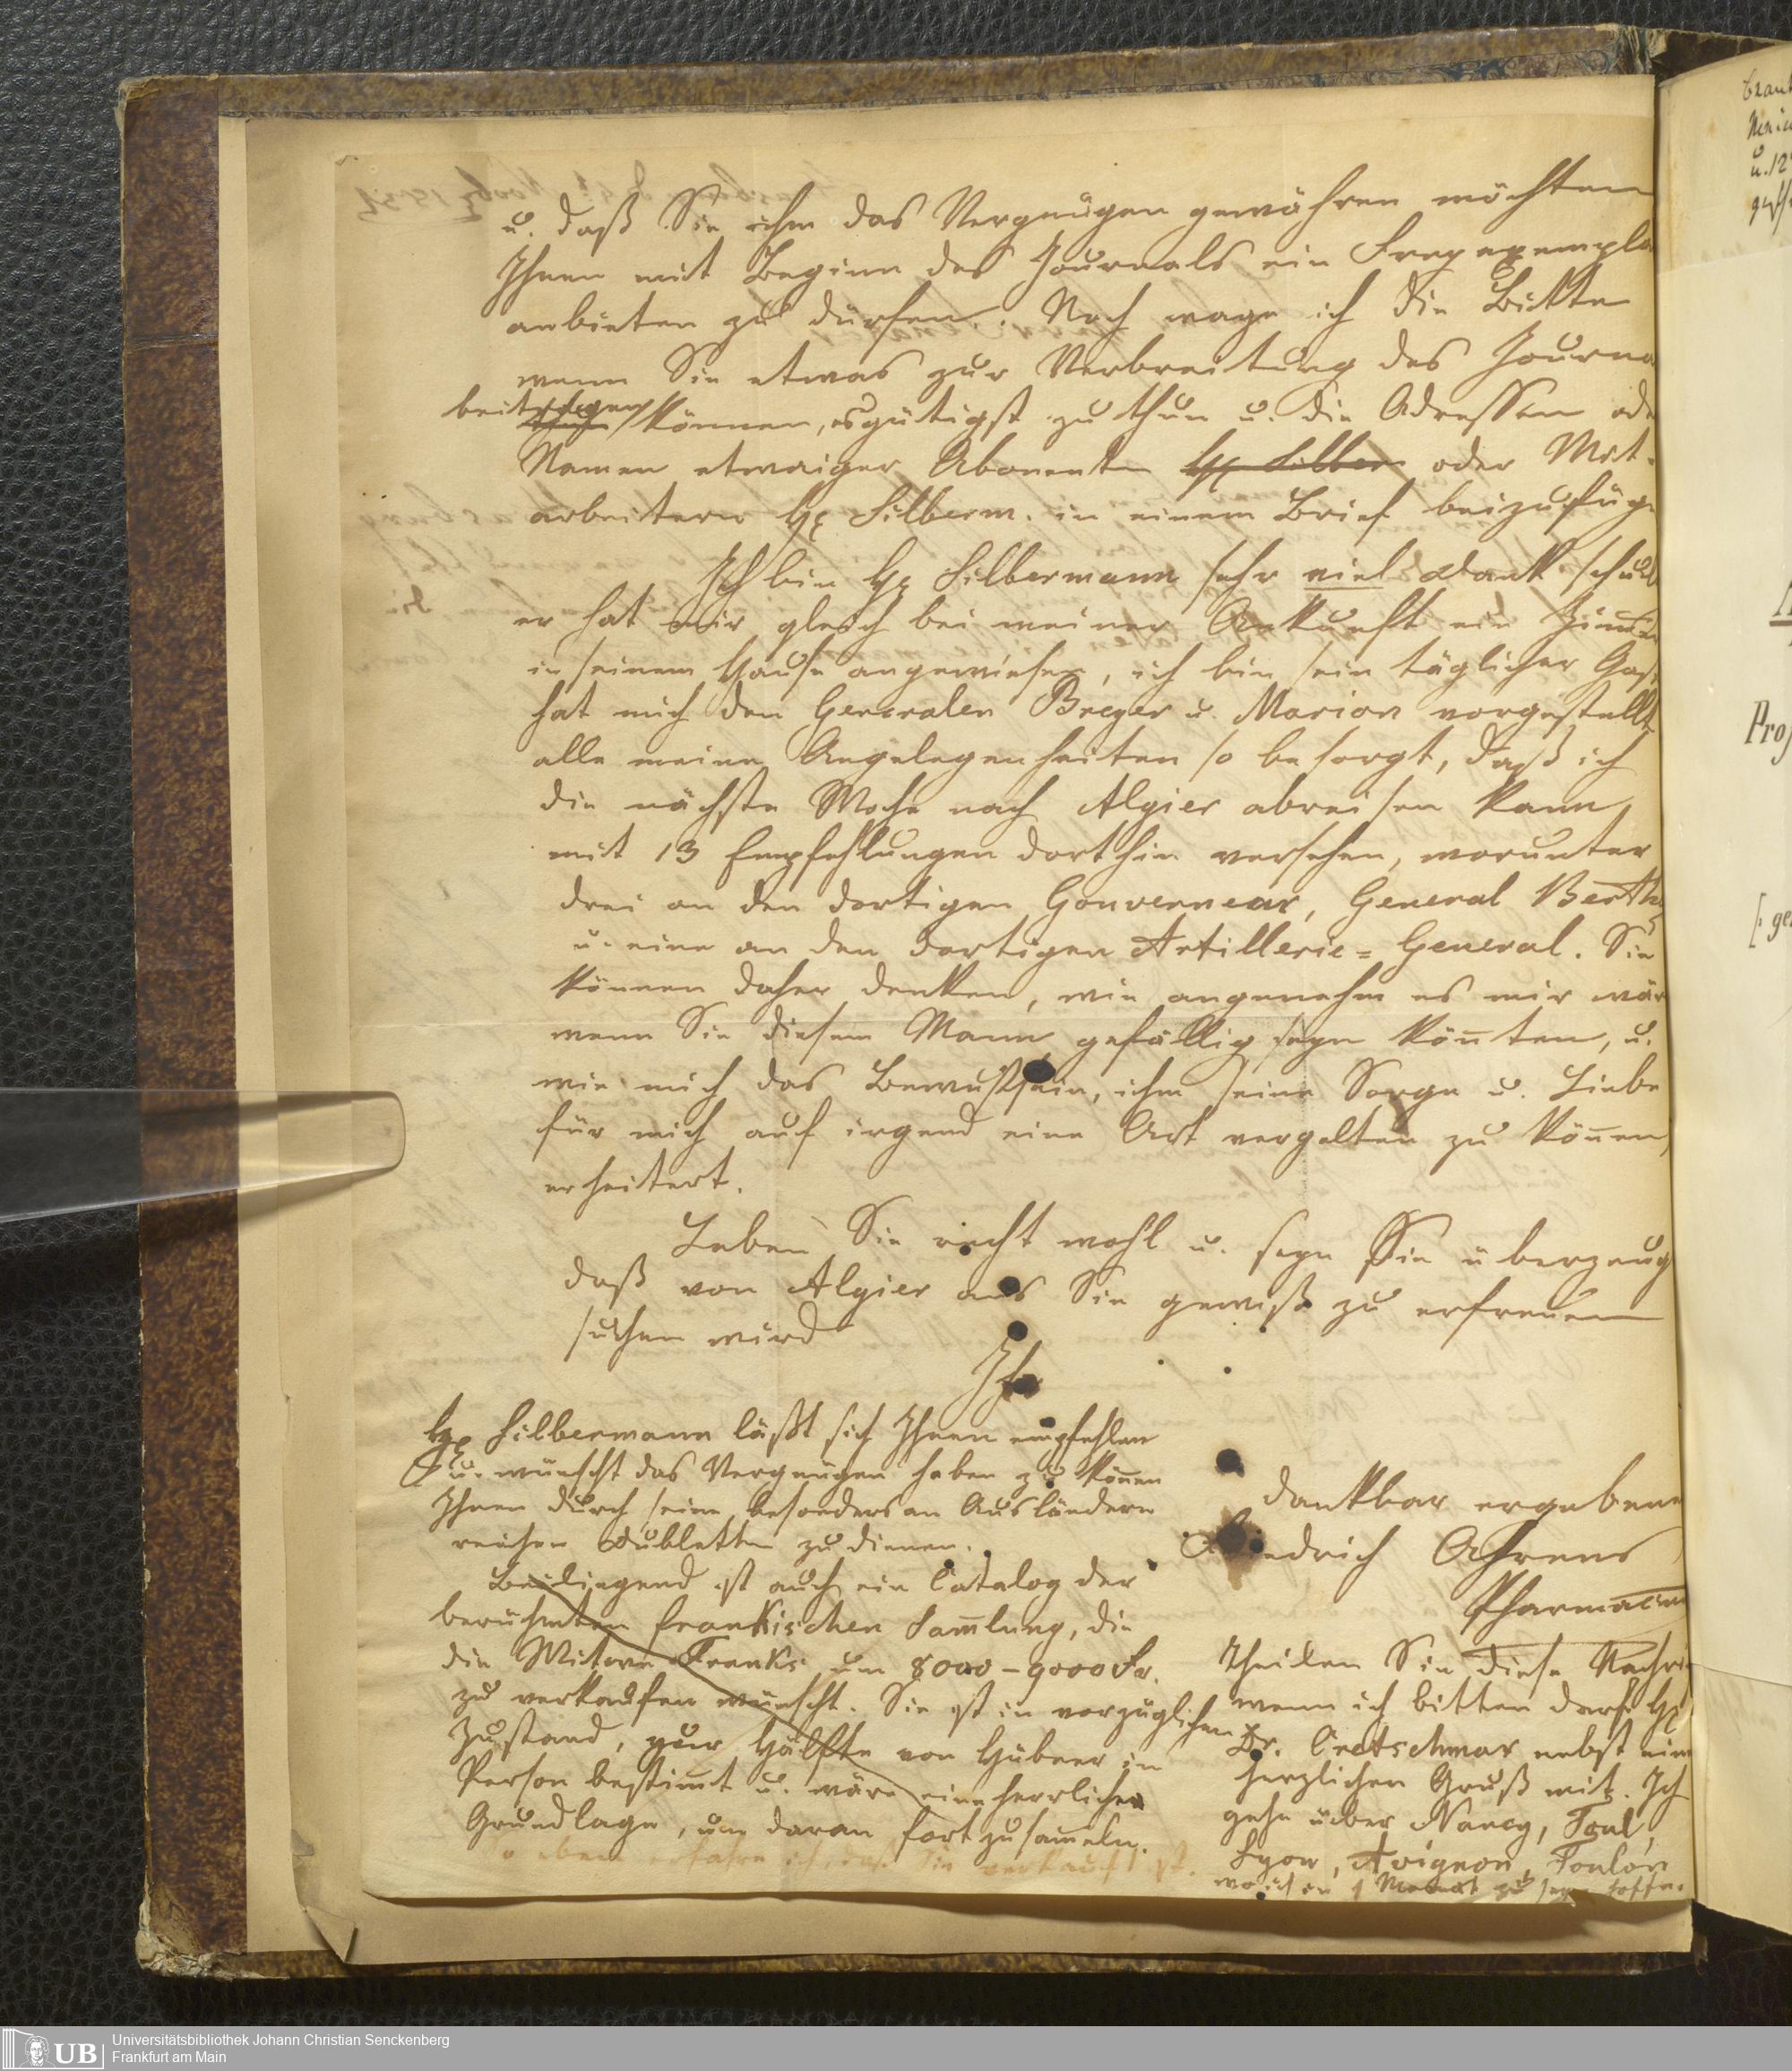 u. daß Sie ihm das Vergnügen gewähren möchten
Ihnen mit Beginn des Journals ein Freyexempla
anbieten zu dürfen. Noch wage ich die Bitte
wenn Sie etwas zur Verbreitung des Journa
beitragen können, es gütigst zu thun u. die Adressen ode
Namen etwaiger Abonenten Hr Silber oder Mit-
arbeitern Hr Silberm. in einem Brief beizufüge
Ich bin Hr Silbermann sehr viel Dank schuld
er hat mir gleich bei meiner Ankunft ein Zimme
in seinem Hause angewiesen, ich bin sein täglicher Gast
hat mich den Generalen Breyer u. Marion vorgestellt
alle meine Angelegenheiten so besorgt, daß ich
die nächste Woche nach Algier abreisen kann
mit 13 Empfehlungen dorthin versehen, worunter
drei an den dortigen Gouverneur, General Berth
u. eine an den dortigen Artillerie-General. Sie
können daher denken, wie angenehm es mir wär
wenn Sie diesem Mann gefällig seyn könnten, u.
wie mich das Bewußtsein, ihm seine Sorge u. Liebe
für mich auf irgend eine Art vergelten zu können,
erheitert.
Leben Sie recht wohl u. seyn Sie überzeug
daß von Algier aus Sie gewiß zu erfreuen
suchen wird
Ihr
dankbar ergebene
Friedrich Ahrens
Pharmaceu
Hr Silbermann läßt sich Ihnen empfehlen
u. wünscht das Vergnügen haben zu können
Ihnen durch seine besonders an Ausländern
reichen Dubletten zu dienen.
Beiliegend ist auch ein Catalog der
berühmten frankischen Samlung, die
die Witwe Franks um 8000-9000 Fr.
zu verkaufen wünscht. Sie ist in vorzüglichen
Zustand, zur Hälfte von Hübner in
Person bestimt u. wäre eine herrliche
Grundlage, um daran fort zu sammeln.
So eben erfahre ich, daß Sie verkauft ist.
Theilen Sie diese Nachri
wenn ich bitten darf Hr
Dr. Cretschmar nebst ein
herzlichen Gruß mit. Ich
gehe über Nancy, Toul,
Lyon, Avignon, Toulon
wo ich in 1 Monat zu seyn hoffe.
Universitätsbibliothek Johann Christian Senckenberg
Frankfurt am Main
UB